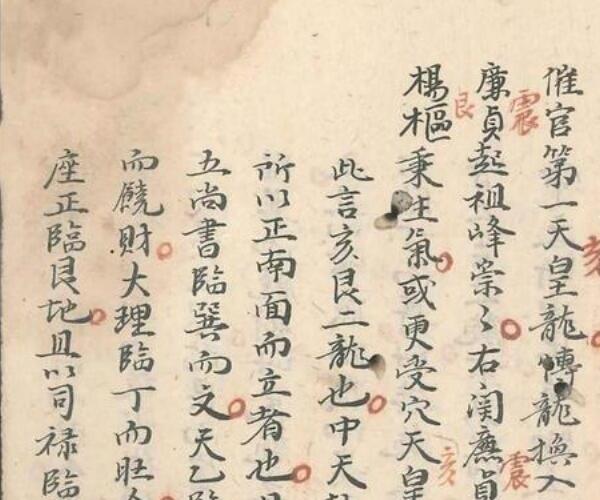 催官第一天皇龍博龍換入
廉貞起祖峰崇〻右關廉貞
楊樞秉生氣或更受穴天皇
此言亥艮二龍也中天
所以正南面而立者也
五尚書臨巽而文天乙臨
而饒財大理臨丁而旺
座正臨艮地且以司祿臨
亥
震
震
艮
亥